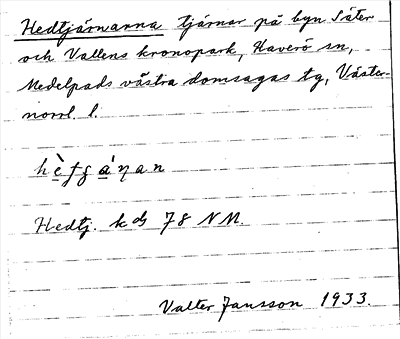 Hedtjärnarna tjärnar på byn Säter
och Vallens kronopark, Haverö sn,
Medelpads västra domsagas tg, Väster-
norrl. l.
hè̱fga̱̍ŋan
Hedtj. kbl 78 NM.
Valter Jansson 1933.